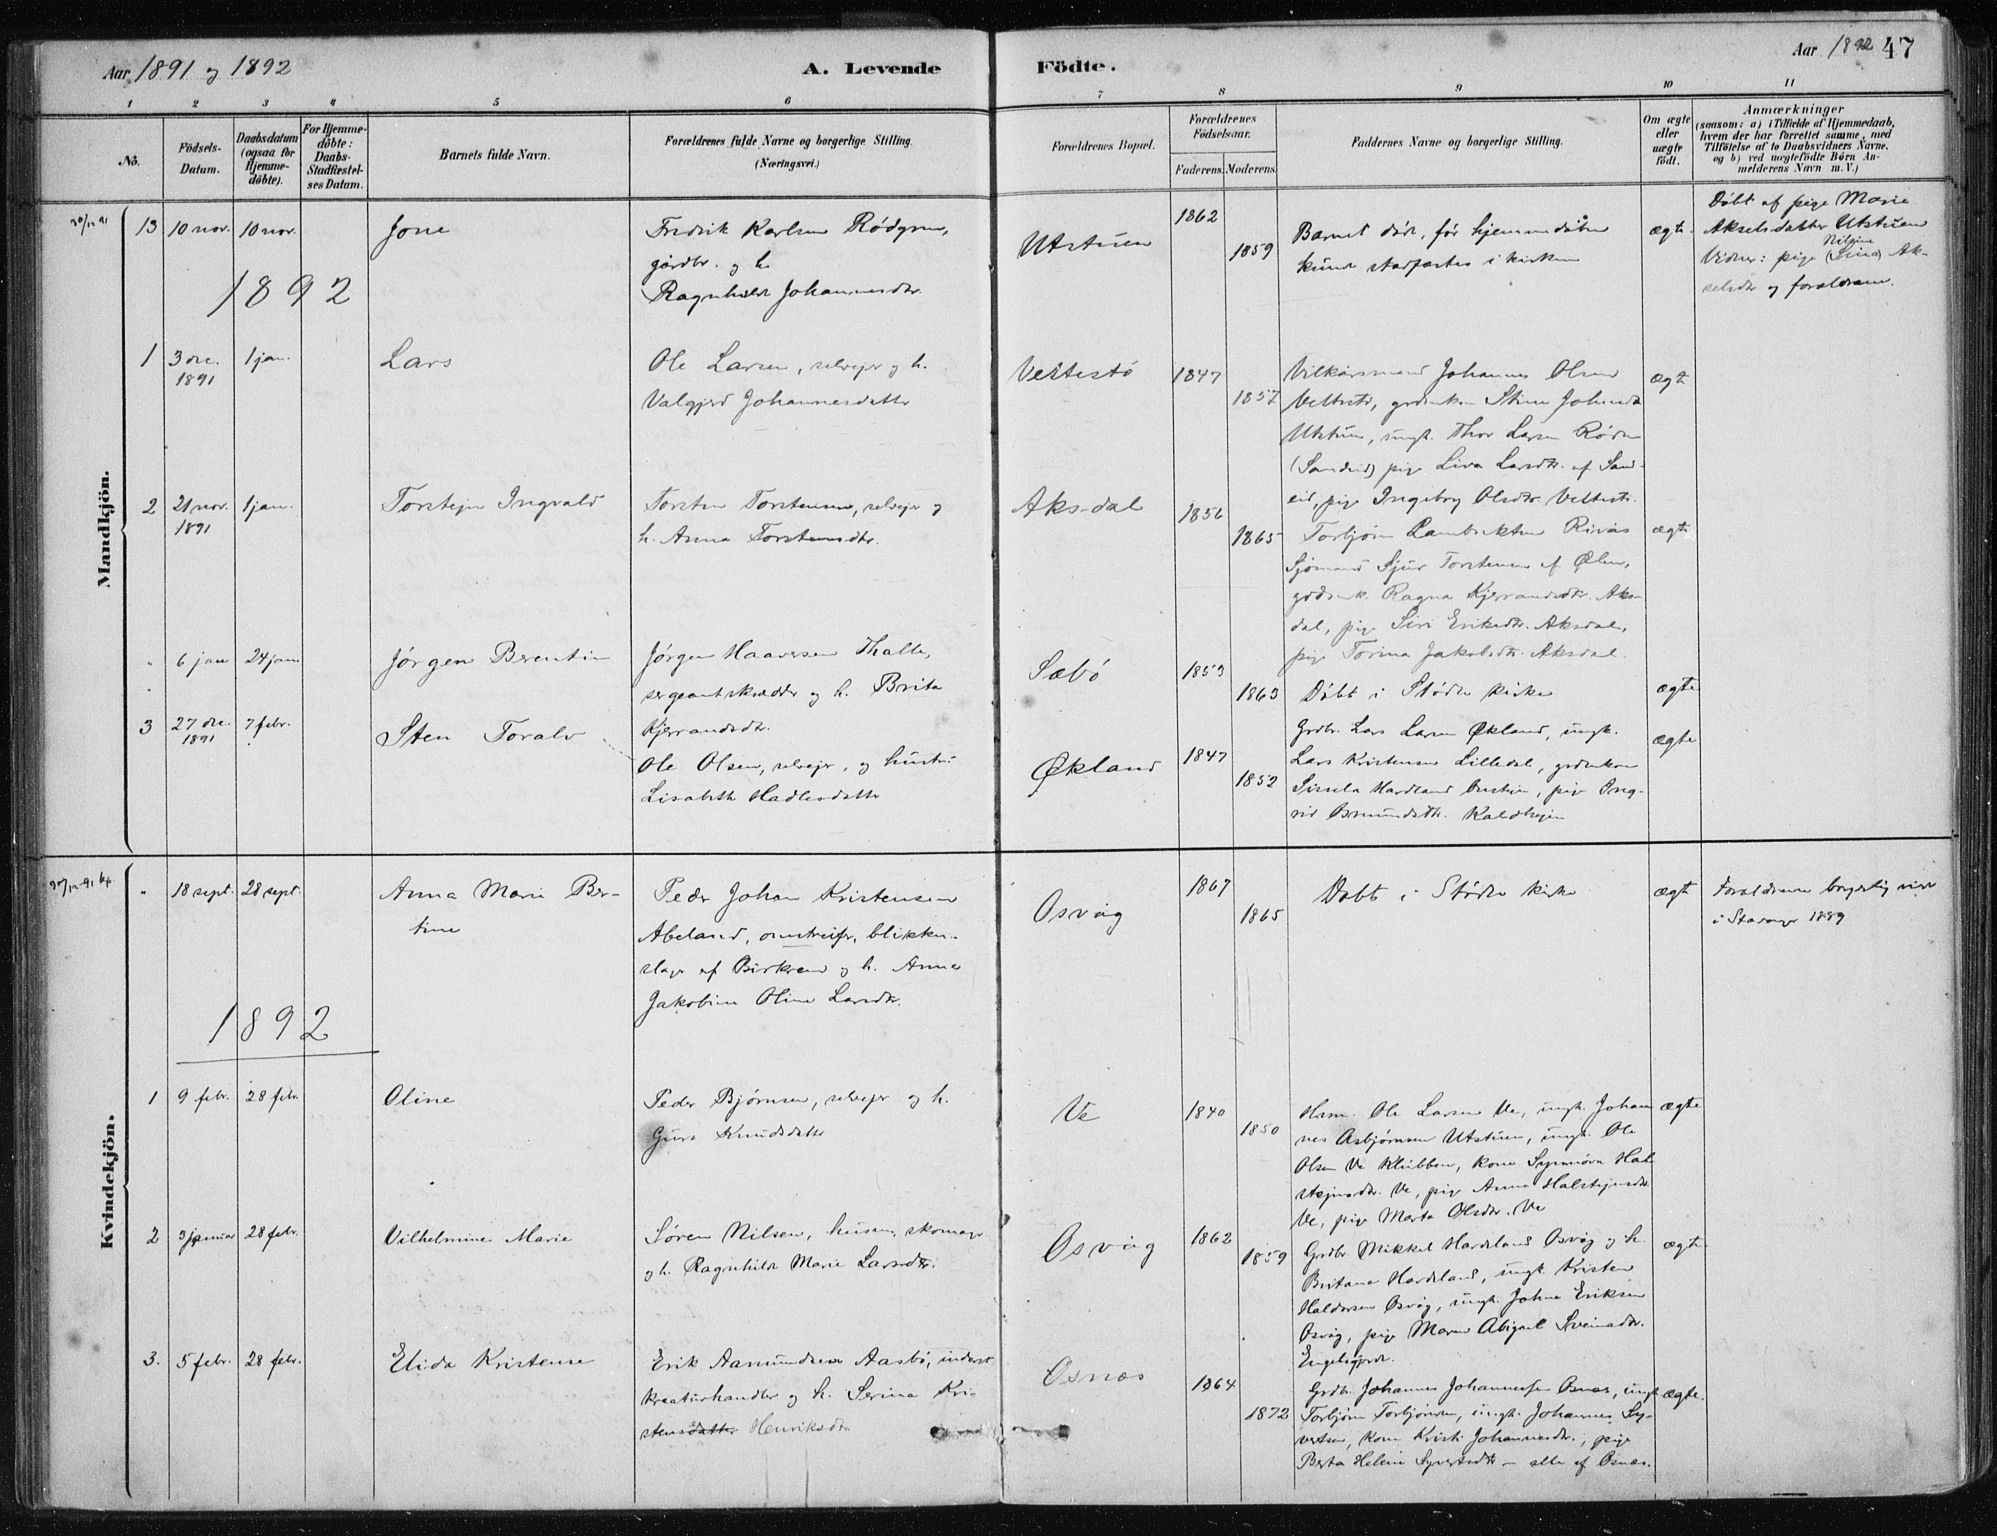 Aar 1891 og 1892
A. Levende
Födte.
Aar 1892
47
1 2 3 4 5 6 7 8 9 10 11
Nô.
Födsels-
Datum.
Daabsdatum
(ogsaa for
Hjemme-
döbte).
For Hjemme-
döbte:
Daabs-
Stadfæstel-
ses Datum.
Barnets fulde Navn.
Forældrenes fulde Navne og borgerlige Stilling.
(Næringsvei.)
Forældrenes Bopæl.
Forældrenes
Födselsaar.
Faderens. Moderens.
Faddernes Navne og borgerlige Stilling.
Om ægte
eller
uægte
födt.
Anmærkninger
(saasom: a) i Tilfælde af Hjemmedaab,
hvem der har forrettet samme, med
Tilföielse af to Daabsvidners Navne.
og b) ved uægtefödte Börn An-
melderens Navn m.V.)
Mandkjön.
30/12 91
13 10 nov. 10 nov.
Jone
Fredrik Karlsen Rødgren,
gårdbr. og h.
Ragnhild Johannesdtr.
Utstuen
1862
1859
Barnet døde, før hjemmedåben
kunde stadfæstes i kirken
ægte
Døbt af pige Marie
Akselsdatter Utstuen
Vidner: pige (Sina) Ak-
selsdtr og forældrene.
1892
1 3 dec. 1 jan.
1891
Lars
Ole Larsen, selvejer og h.
Valgjerd Johannesdatter
Vestestø
1847
1857
Vilkårsmand Johannes Olsen
Vettestø, grdmkon Stine Johnsdtr
Utstuen, ungk. Thor Larsen Røden
(Sandeid) pige Liva Larsdtr. af Sand-
eid, pige Ingeborg Olsdtr. Vettestø.
ægte
2 21 nov. 1 jan.
1891
Torstejn Ingvald
Torsten Torstensen, selvejer og
h. Anna Torstensdtr.
Aksdal
1856
1865
Torbjørn Lambriktsen Rivås
Sjømand Sjur Torstensen af Ølen,
grdmk. Ragna Kjerrandsdtr. Aks-
dal, pige Siri Eriksdtr. Aksdal,
pige Torina Jakobsdtr. Aksdal.
ægte
" 6 jan 24 jan
Jørgen Berentin
Jørgen Haaversen Thalle,
sergeant skrædder og h. Brita
Kjerrandsdtr.
Sæbö
1859
1863
Døbt i Stødle kirke
ægte
3 27 dec. 7 febr.
1891
Sten Toralv
Ole Olsen, selvejer, og hustru
Lisabeth Hadlesdatter
Økland
1847
1852
Grdbr. Lars Larsen Økland, ungk.
Lars Kristensen Lilledal, grdmkon
Sissela Hardland Østhein, pige Ing-
rid Osmundsdtr. Kaldhejen
ægte
Kvindekjön.
30/12 91
" 18 sept. 28 sept.
Anna Marie Ber-
tine
Peder Johan Kristensen
Abeland, omstreifer, blikken-
slager af Birkrem og h. Anna
Jakobine Oline Larsdtr.
Osvåg
1867
1865
Døbt i Stødle kirke
ægte
Forældrene borgerlig viet
i Stavanger 1889
1892
1 9 febr. 28 febr.
Oline
Peder Bjørnsen, selvejer og h.
Guro Knudsdatter
Ve
1840
1850
Husm. Ole Larsen Ve, ungk. Johan-
nes Asbjørnsen Utstuen, ungk. Ole
Olsen Ve Klubben, kone Synnøva Hal-
stejnsdtr. Ve, pige Anna Halstejnsdtr
Ve, pige Marta Olsdtr. Ve
ægte
2 3 januar 28 febr.
Vilhelmine Marie
Søren Nilsen, husm., skomager
og h. Ragnhilde Marie Larsdtr.
Osvåg
1862
1859
Grdbr Mikkel Hardeland Osvåg og h.
Britana Hardeland, ungk. Kristen
Haldorsen Osvåg, ungk. Johan Eriksen
Osvåg, pige Maren Abigael Sveinsdtr.
Engelsgjerde.
ægte
3. 5 febr. 28 febr.
Elida Kristense
Erik Aamundsen Aasbø, inderst
kreaturhandler og h. Serina Kri-
stensdatter Henriksdtr.
Osnæs
1864
1872
Grdbr. Johannes Johannesen Osnæs, ungk
Torbjørn Torbjørnsen, ungk. Johannes Sy-
vertsen, kone Kristi Johannesdtr., pige
Berta Helene Syvertsdtr – alle af Osnæs.
ægte.